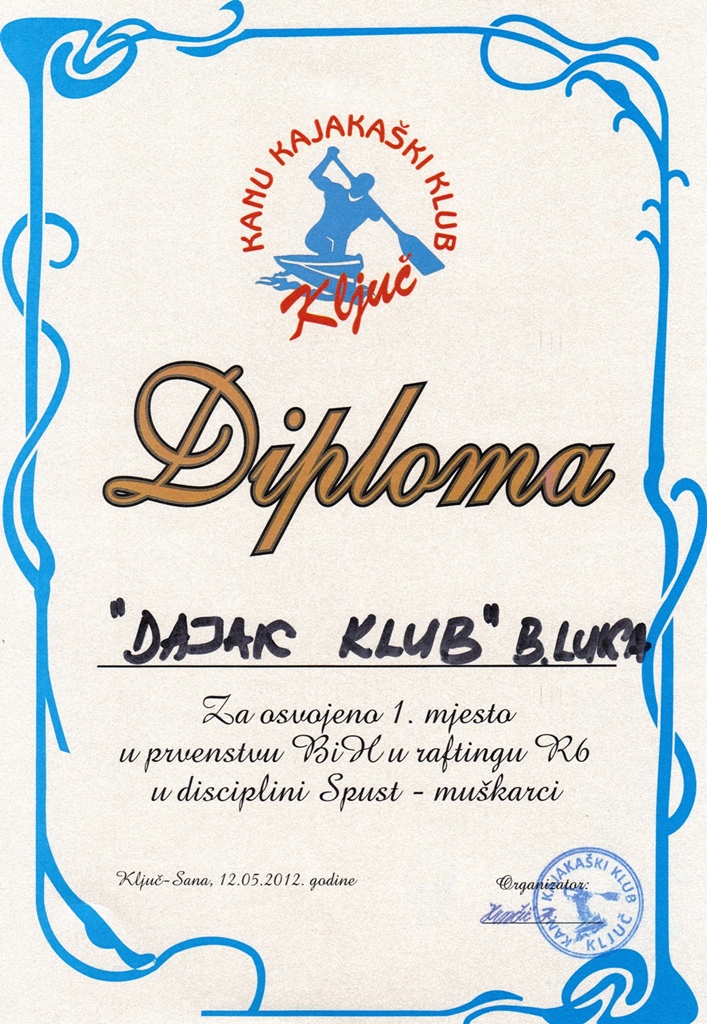 KANU KAJAKAŠKI KLUB
Ključ
Diploma
"DAJAK KLUB" B.LUKA
Za osvojeno 1. mjesto
u prvenstvu BiH u raftingu R6
u disciplini Spust - muškarci
Ključ-Sana, 12.05.2012. godine
Organizator:
KANU KAJAKAŠKI KLUB
KLJUČ